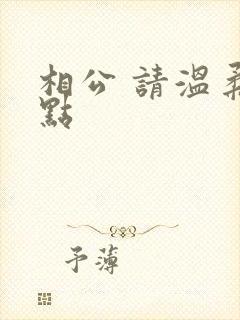 相公 請溫柔
點
予薄